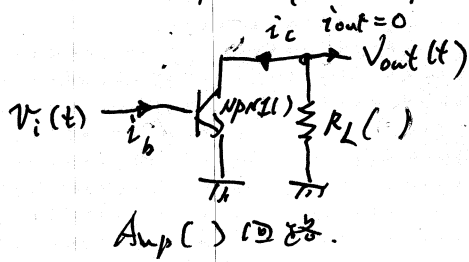 i_c i_out=0
V_out(t)
V_i(t)
NPN1()
R_L( )
i_b
Amp( ) 回路.